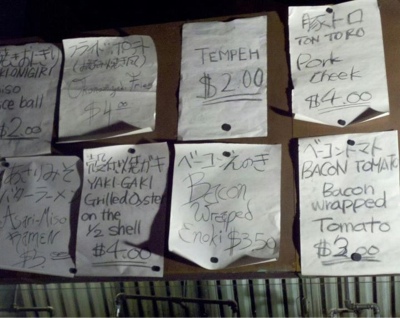 ONIGIRI
Miso
rice ball
$2.00
Fried
$4.00
TEMPEH
$2.00
トントロ
TON TORO
Pork
cheek
$4.00
あさりみそ
バターラーメン
Asari-Miso
RAMEN
YAKI-GAKI
Grilled Oyster
on the
1/2 shell
$4.00
ベーコンえのき
Bacon
Wrapped
Enoki $3.50
ベーコントマト
BACON TOMATO
Bacon
wrapped
Tomato
$3.00